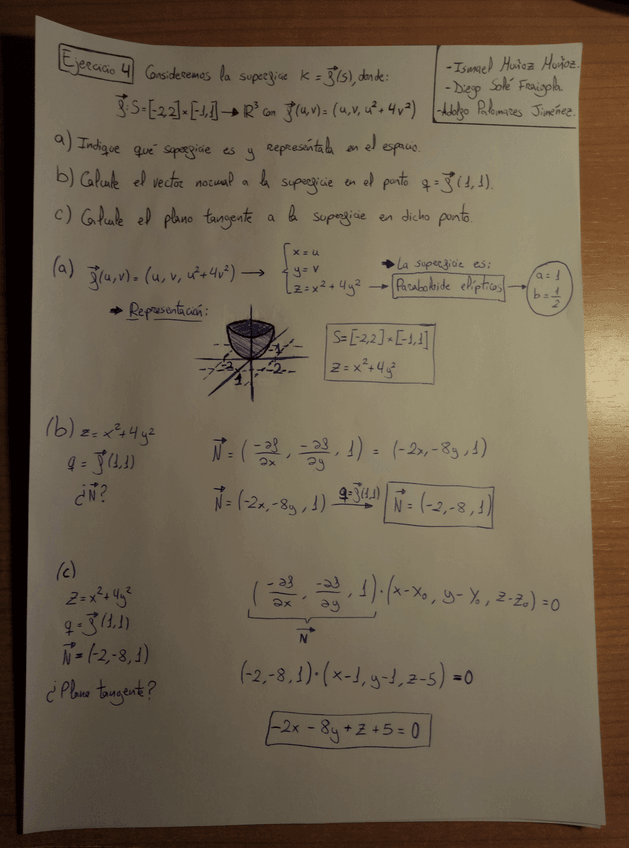 Ejercicio 4
Consideremos la superficie K = f(S), donde:
- Ismael Muñoz Muñoz.
- Diego Solé Fraigola
- Adolfo Palomares Jiménez.
f: S=[-2,2]×[-1,1] → ℝ³ con f(u,v) = (u, v, u²+4v²)
a) Indique qué superficie es y represéntala en el espacio.
b) Calcule el vector normal a la superficie en el punto q = f(1,1).
c) Calcule el plano tangente a la superficie en dicho punto.
(a) f(u,v) = (u, v, u²+4v²) → { x=u
y=v
z=x²+4y²
→ La superficie es:
→ Paraboloide elíptico → a=1
b=1/2
→ Representación:
-2 -1
1 -2
S=[-2,2]×[-1,1]
z=x²+4y²
(b) z=x²+4y²
q = f(1,1)
¿N?
N = (-∂f/∂x, -∂f/∂y, 1) = (-2x, -8y, 1)
N = (-2x, -8y, 1) q=f(1,1) → N = (-2, -8, 1)
(c)
z=x²+4y²
q = f(1,1)
N = (-2, -8, 1)
¿Plano tangente?
(-∂f/∂x, -∂f/∂y, 1)·(x-x₀, y-y₀, z-z₀) = 0
N
(-2,-8,1)·(x-1, y-1, z-5) = 0
-2x - 8y + z + 5 = 0